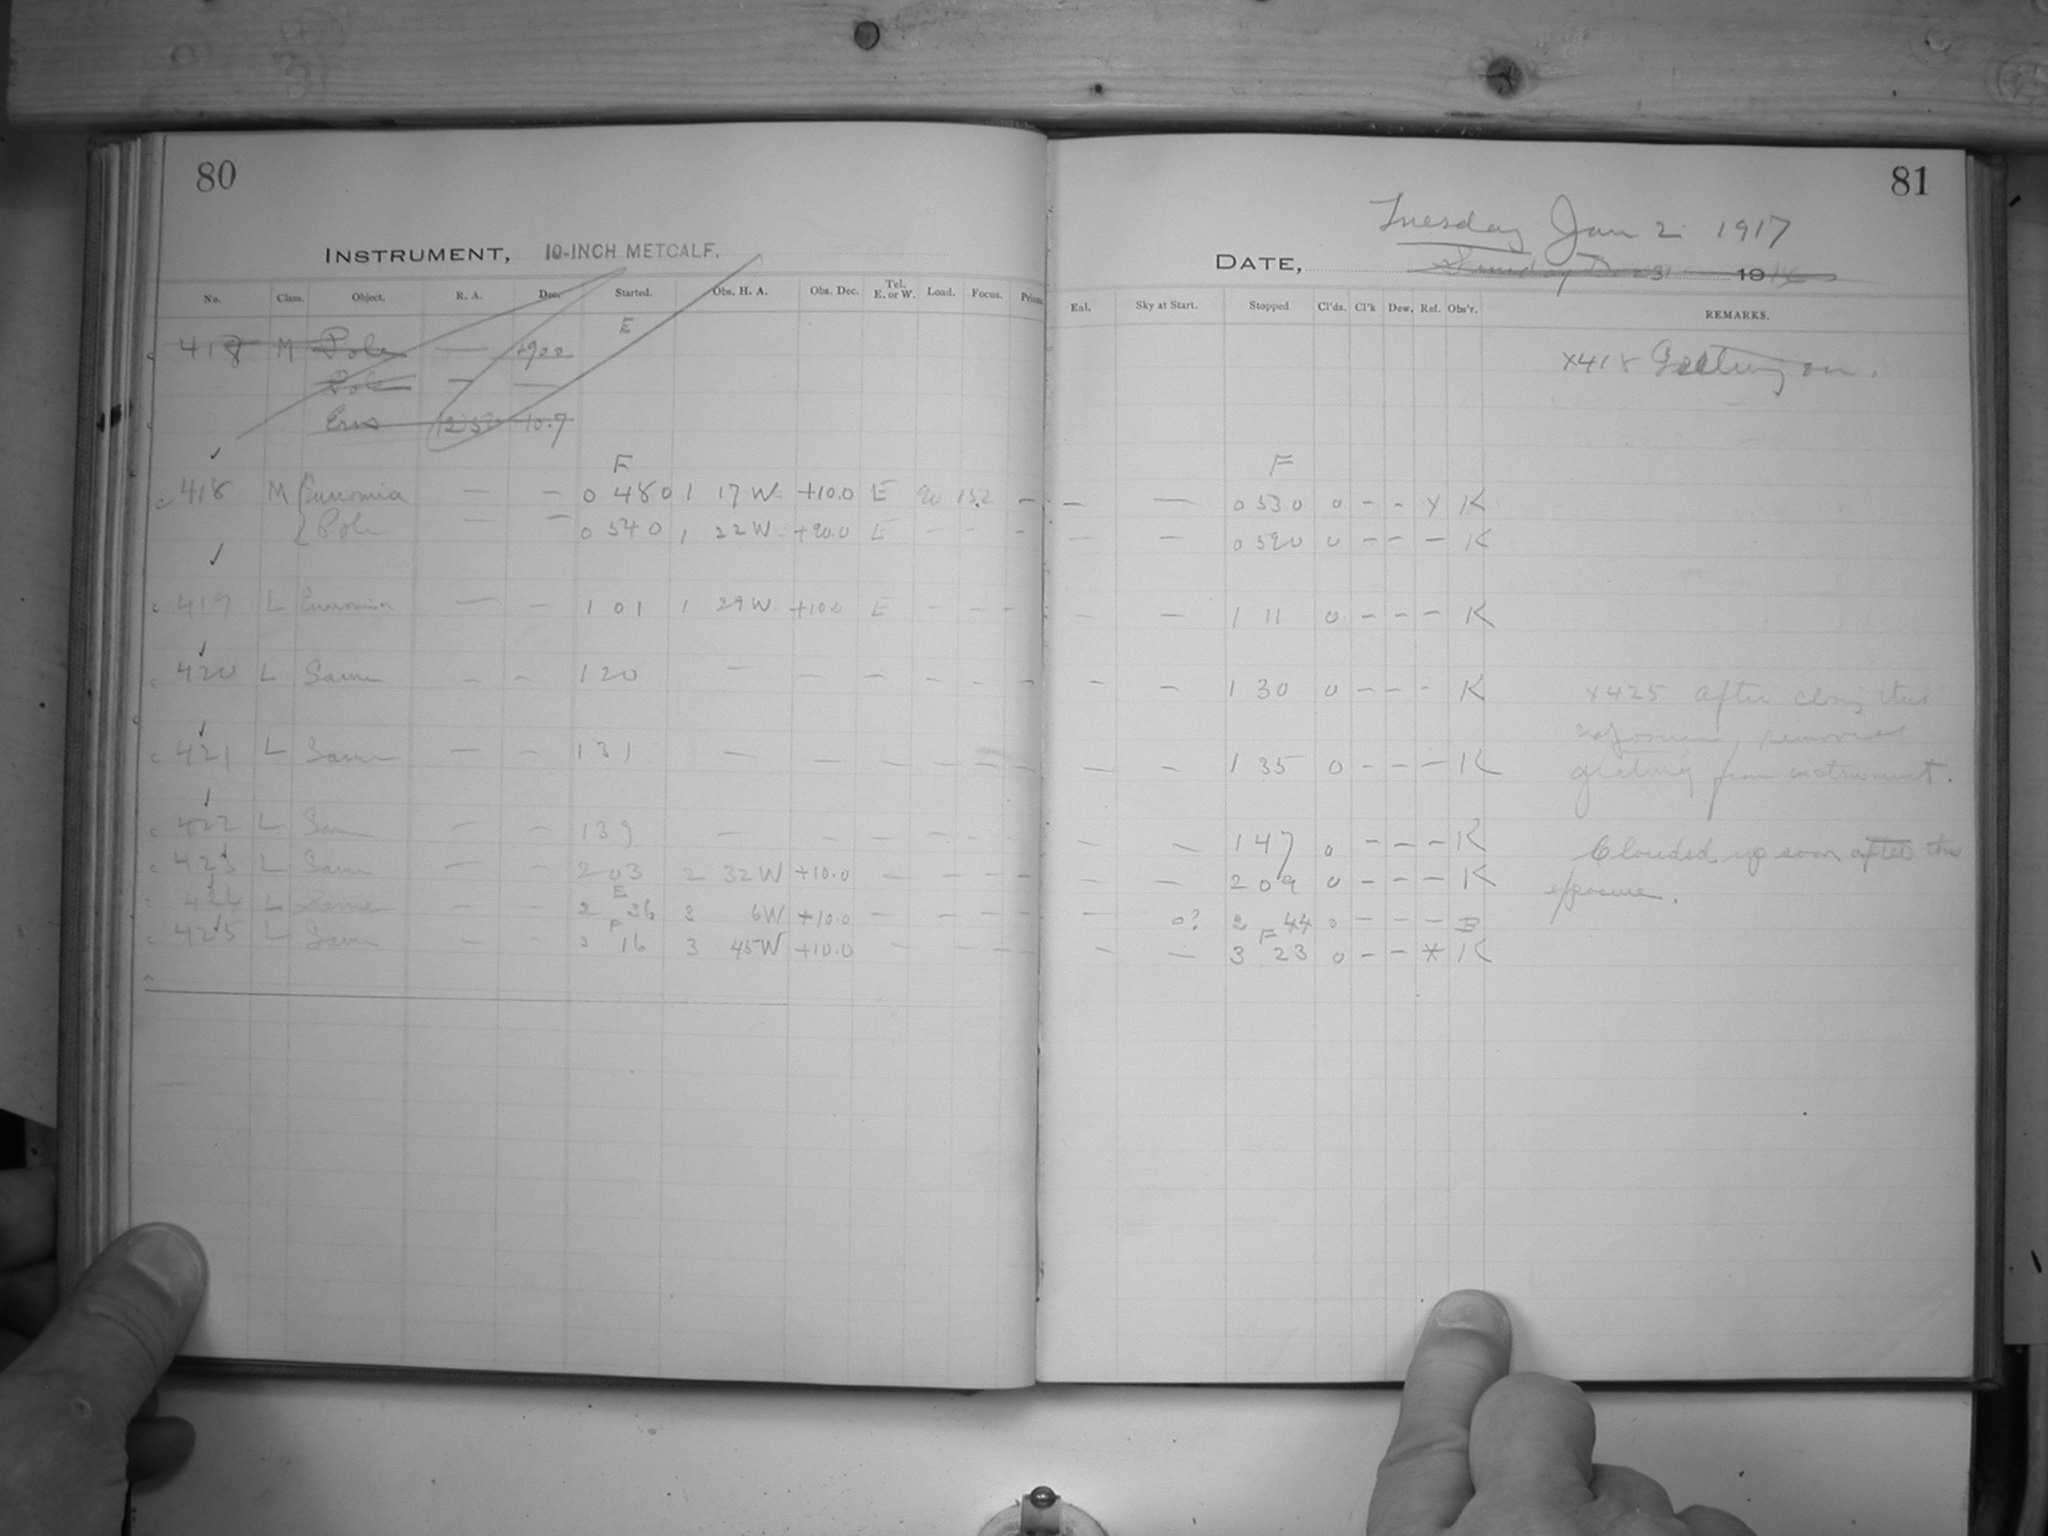 80
INSTRUMENT, 10-INCH METCALF.
No. Class. Object. R. A. Dec. Started. Obs. H. A. Obs. Dec. Tel. E. or W. Load. Focus.
E
418 M Pole — +90.0
Pole — —
Eros
F
418 M Eunomia — — 0 480 1 17 W +10.0 E 152 —
Pole — — 0 540 1 22 W +90.0 E — — —
419 L Eunomia — — 1 01 1 29 W +10.0 E — — —
420 L Same — — 1 20 — — — — — —
421 L Same — — 1 31 — — — — — —
422 L Same — — 1 39 — — — — — —
423 L Same — — 2 03 2 32 W +10.0 — — — —
E
424 L Same — — 2 36 3 6 W +10.0 — — — —
F
425 L Same — — 3 16 3 45 W +10.0 — — — —
81
Tuesday Jan 2 1917
DATE, Sunday Dec 31 1916
Enl. Sky at Start. Stopped Cl'ds. Cl'k Dew. Ref. Obs'r. REMARKS.
x418 Grating on.
F
— — 0 530 0 - - x K
— — 0 590 0 - - - K
— — 1 11 0 - - - K
— — 1 30 0 - - - K
x425 After this
— — 1 35 0 - - - K
removed
grating from instrument.
— — 1 47 0 - - - K
Clouded up soon after the
— — 2 09 0 - - - K
exposure.
— 0? 2 44 0 - - - B
F
— — 3 23 0 - - * K